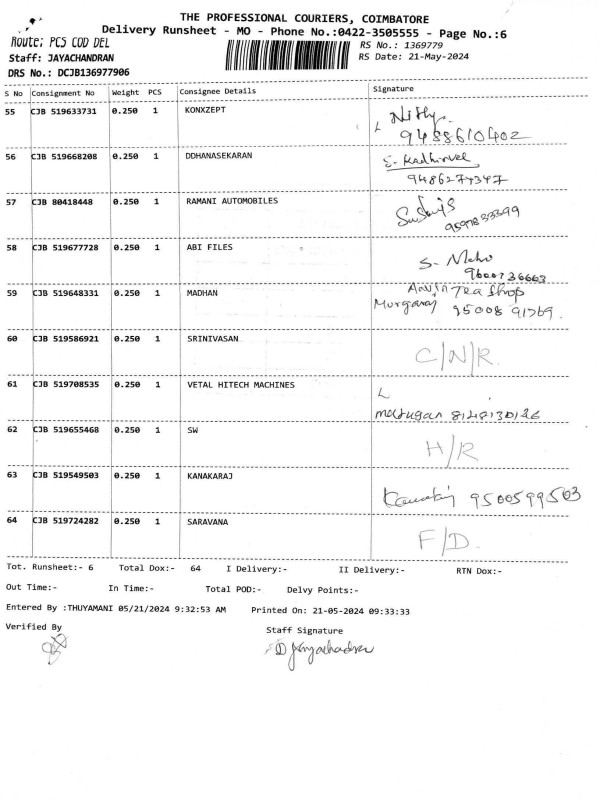 THE PROFESSIONAL COURIERS, COIMBATORE
Delivery Runsheet - MO - Phone No.:0422-3505555 - Page No.:6
Route: PCS COD DEL
RS No.: 1369779
Staff: JAYACHANDRAN
RS Date: 21-May-2024
DRS No.: DCJB136977906
S No Consignment No Weight PCS Consignee Details Signature
55 CJB 519633731 0.250 1 KONXZEPT
9488610402
56 CJB 519668208 0.250 1 DDHANASEKARAN S. Kadhirvel
9486274347
57 CJB 80418448 0.250 1 RAMANI AUTOMOBILES
58 CJB 519677728 0.250 1 ABI FILES
9600736663
59 CJB 519648331 0.250 1 MADHAN Tea Shop
Murgaraj 95008 91769.
60 CJB 519586921 0.250 1 SRINIVASAN C/N/R.
61 CJB 519708535 0.250 1 VETAL HITECH MACHINES
62 CJB 519655468 0.250 1 SW H/R
63 CJB 519549503 0.250 1 KANAKARAJ 9500599503
64 CJB 519724282 0.250 1 SARAVANA F/D.
Tot. Runsheet:- 6 Total Dox:- 64 I Delivery:- II Delivery:- RTN Dox:-
Out Time:- In Time:- Total POD:- Delvy Points:-
Entered By :THUYAMANI 05/21/2024 9:32:53 AM Printed On: 21-05-2024 09:33:33
Verified By Staff Signature